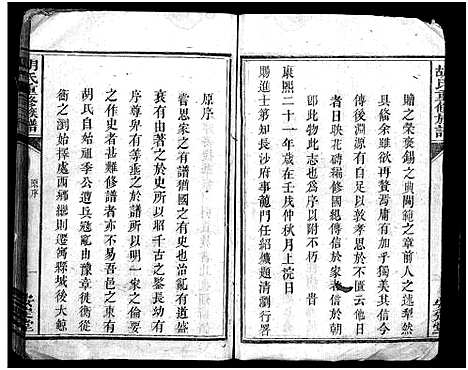 胡氏重修族譜
贈之榮褒錫之典閫範之章前人之述
具備余雖欲再贅焉庸有加乎獨美其信今
傳後淵源有自尤以孝思於不匱云他日
者日映花磚編修國纪傳信於家者信於朝
即此物此志也爲序以附不朽 旹
康熙二十一年歲在壬戌仲秋月上浣日
賜進士第知長沙府事龍門任紹爌題清瀏行署
原序
嘗思家之有譜猶國之有史也治亂道盛
衰有由著之於史所以昭千古之鑒長幼有
序尊卑有等或之於譜所以明一家之倫要
之作史者甚難修譜者亦不易吾邑之東有
胡氏自始祖季公遭兵寇亂由豫章徙衡行
衡之瀏始擇處西鄉繼則遷寓縣城後大鯨
胡氏重修族譜
原序
一
安定堂